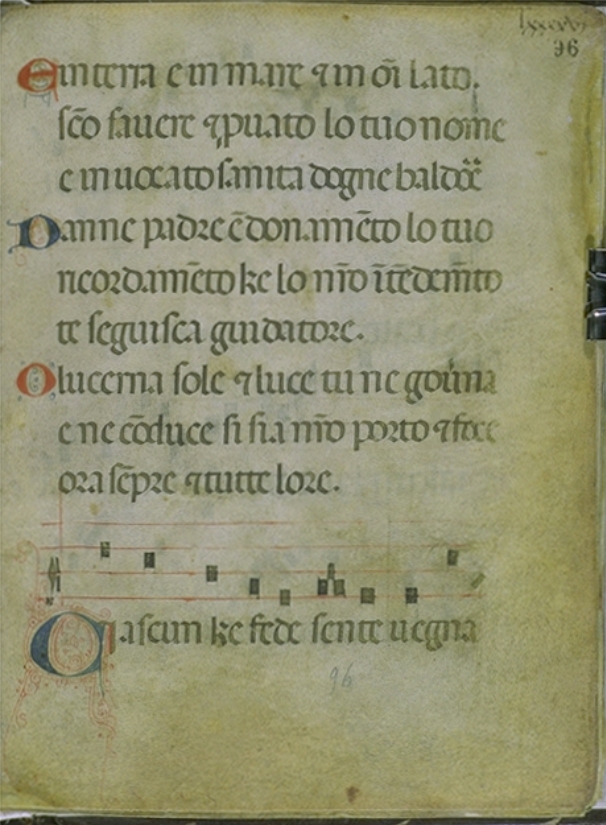 lxxxxvi
96
E in terra e in mare ⁊ in oi lato.
sc̄o sauere ⁊ puato lo tuo nome
e inuocato sanita dogne baldoē
Danne padre ē donamēto lo tuo
ricordamēto ke lo nr̄o ītēdem̄to
te seguisca guidatore.
O lucerna sole ⁊ luce tu ne gou̓na
e ne cōduce si sia nr̄o porto ⁊ foce
ora sēpre ⁊ tutte lore.
Qiascun ke fede sente uegna
96